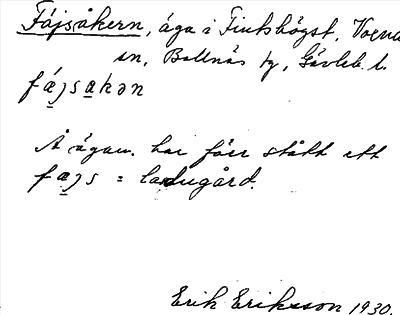 Fäjsåkern, äga i Finkshögst, Voxna
sn, Bollnäs tg, Gävleb. l.
fäjsakən
Å ägan. har förr stått ett
fäjs = ladugård.
Erik Eriksson 1930.